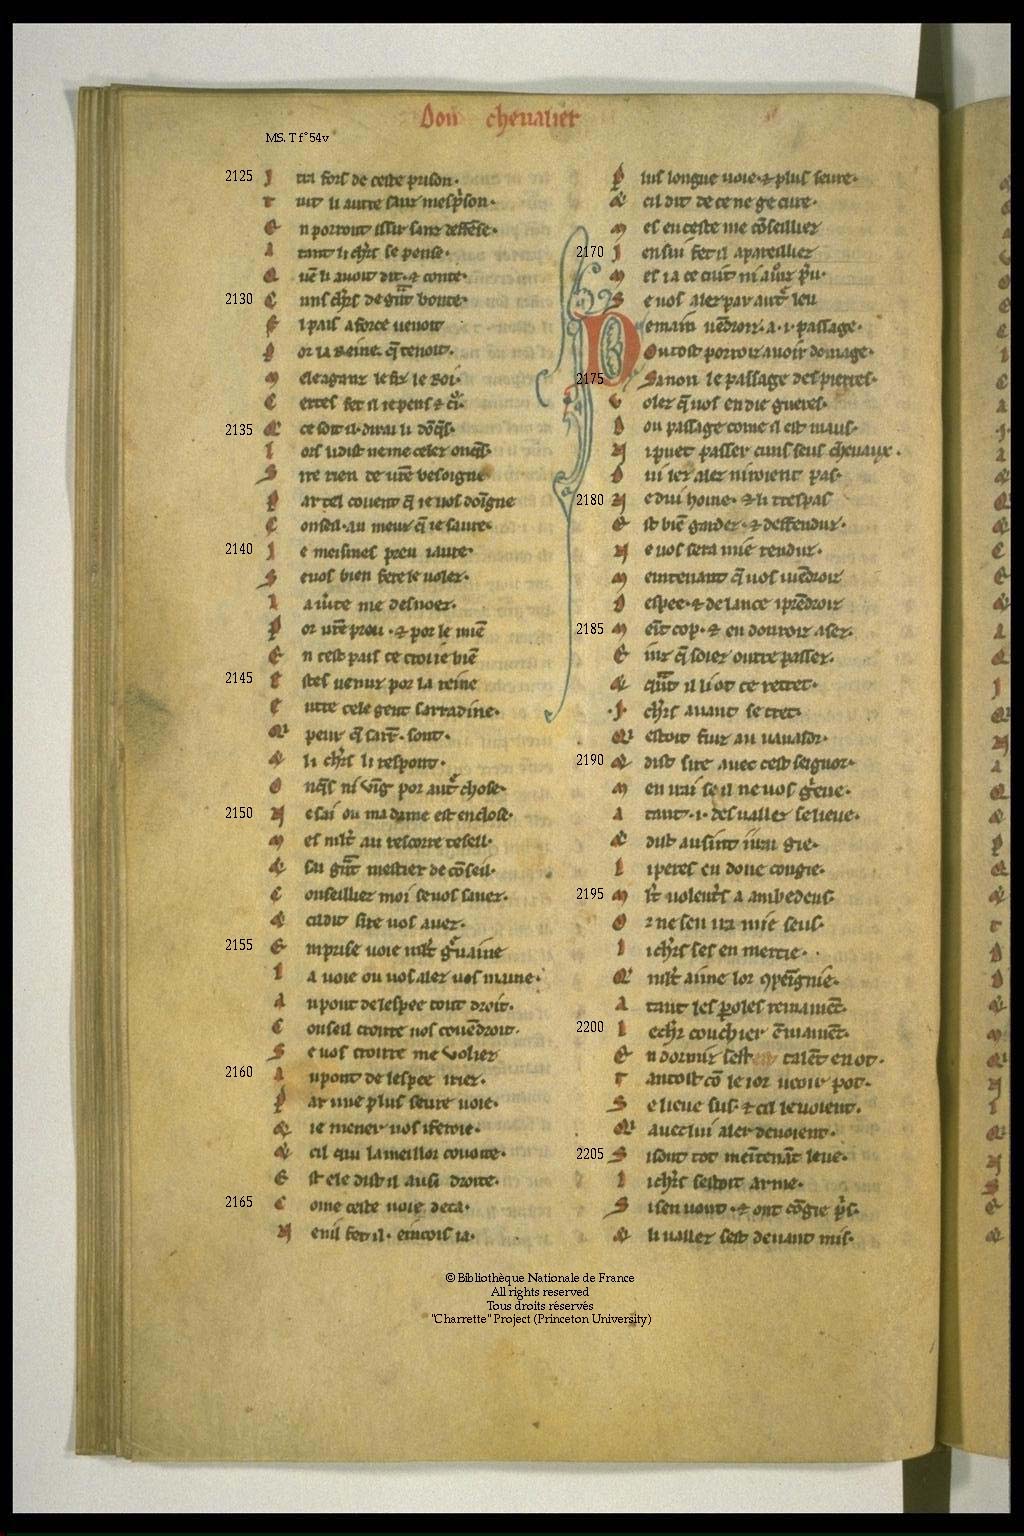 Dou cheualier
MS. T f°54v
2125 I tra fors de ceste prison.
T uit li autre sanz mesp̄son.
E n porront issir sanz deffēse.
A tant li ch̄rs se pense.
Q uē li auoit dit. & conte.
2130 C uns ch̄rs de grāt bonte.
E l pais a force uenoit
P or la Reine. q̄ tenoit.
M eleaganz le filz le Roi.
C ertes fet il ie pens & croi.
2135 Q ce soit il. dirai li dōq̄s.
L ors li dist ne me celer onq̄s.
S ire rien de ur̄e besoigne
P ar tel couent q̄ ie uos doīgne
C onseil. au meuz q̄ ie saure.
2140 I e meismes preu i aure.
S e uos bien fere le uolez.
L a u'ite me desnoez.
P or ur̄e preu. & por le miē
E n cest pais ce croi ie biē
2145 E stes uenuz por la reine
E ntre cele gent sarradine.
Q peur q̄ sarr̄. sont.
& li ch̄rs li respont.
O nq̄s ni ving por aut' chose.
2150 N e sai ou ma dame est enclose.
M es ml't au rescorre tesell.
& sai grāt mestier de cōseil.
C onseilliez moi se uos sauez.
& cil dit sire uos auez.
2155 E mprise uoie ml't g'uaine
L a uoie ou uos alez uos maine.
A u pont de lespee tout droit.
C onseil croire uos couēdroit.
S e uos croirre me volez
2160 A u pont de lespee irez.
P ar une plus seure uoie.
& ie mener uos i feroie.
& cil qui la meillor couoite.
E st ele dist il ausi droite.
2165 C ome ceste uoie deca.
N enil fet il. eincois i a.
P lus longue uoie. & plus seure.
& cil dit de ce ne ge cure.
M es en ceste me cōseilliez
2170 I en sui fet il apareilliez
M es ia ce cuit ni aur̄ez p̄u.
S e uos alez par aut' leu
D emain uēdroiz. a. i. passage.
Ou tost porroiz auoir domage.
2175 Sanon le passage des pierres.
V olez q̄ uos en die gueres.
D ou passage come il est maus.
N i puet passer cuns seus cheuaux.
D ui ier alez ni roient pas.
2180 N e dui home. & li trespas
E st biē gardez. & deffenduz.
N e uos sera mie renduz.
M eintenant q̄ uos i uiēdroiz
D espee. & de lance i prēdroiz
2185 M eīt cop. & en donroiz asez.
E inz q̄ soiez outre passez.
& q̄nt il li ot ce retret.
.I. ch̄rs auant se tret.
Q estoit filz au uauasor.
2190 & dist sire auec cest seignor.
M en urai se il ne uos g'eue.
A tant. i. des uallez se lieue.
& dist ausint i irai gie.
L i peres en done congie.
2195 M l't uolent's a ambedeus.
O r ne sen ira mie seus.
L i ch̄rs les en mercie.
Q ml't aime lor 9peīgnie.
A tant les p̄oles remainēt.
2200 L e ch̄r couchier ēmainēt.
E n dormir sest talēt en ot.
T antost cō le ior ueoir pot.
S e lieue sus. & cil le uoient.
Q auec lui aler deuoient.
2205 S i sont tot meītenāt leue.
L i ch̄rs sestoit arme.
S i sen uont. & ont cōgie p̄s.
& li uallez sest deuant mis.
©Bibliothèque Nationale de France
All rights reserved
Tous droits réservés
"Charrette" Project (Princeton University)